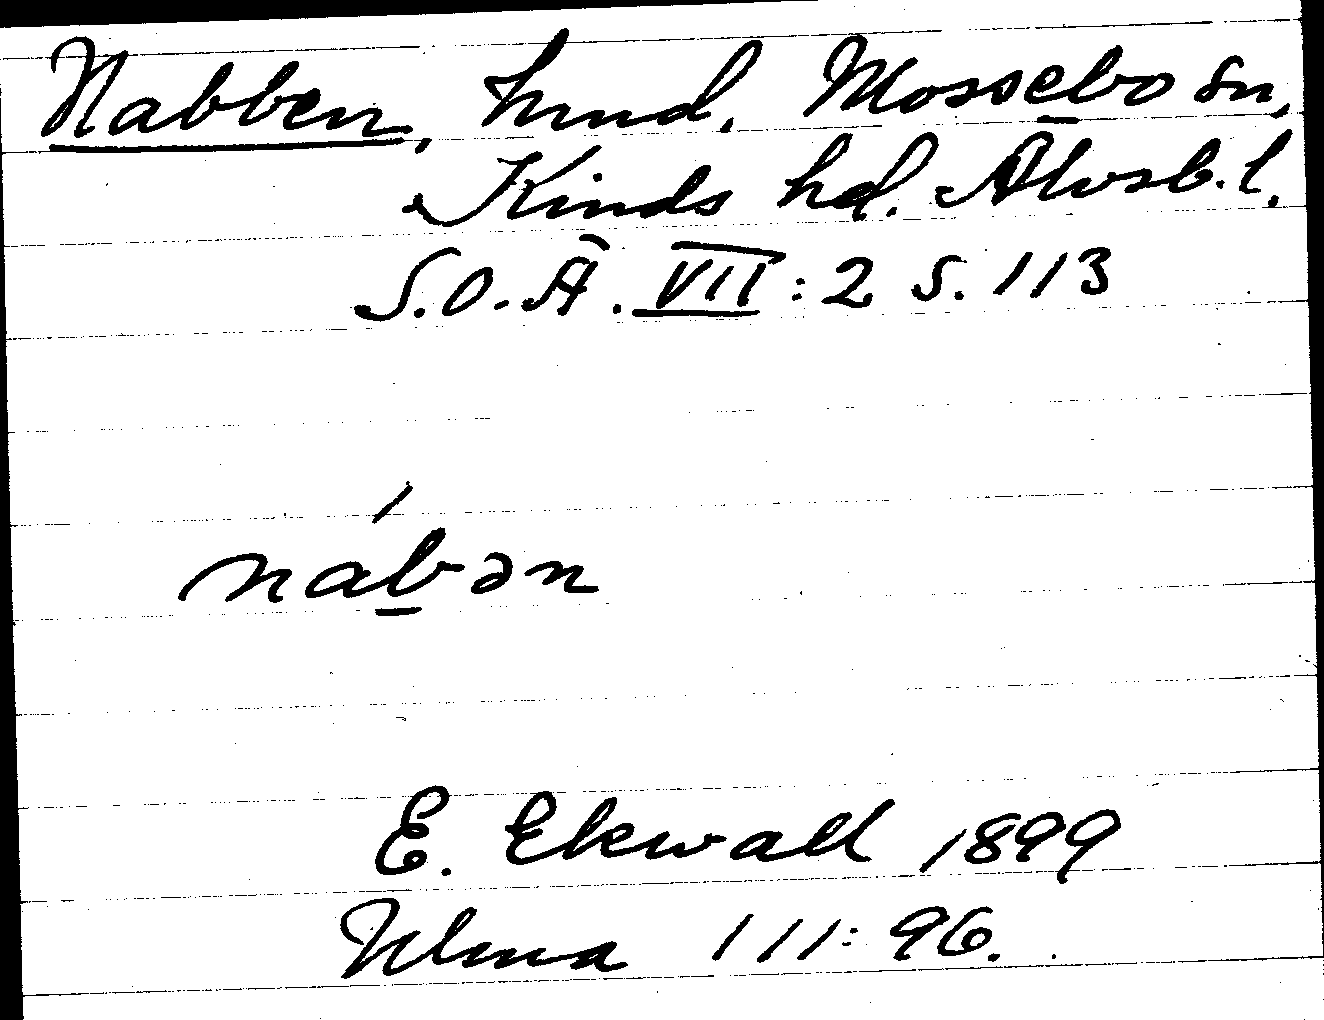 Nabben, hmd. Mossebo sn,
Kinds hd. Älvsb. l.
S.O.Ä. VII:2 s. 113
náb̲ən
E. Ekwall 1899
Ulma 111:96.